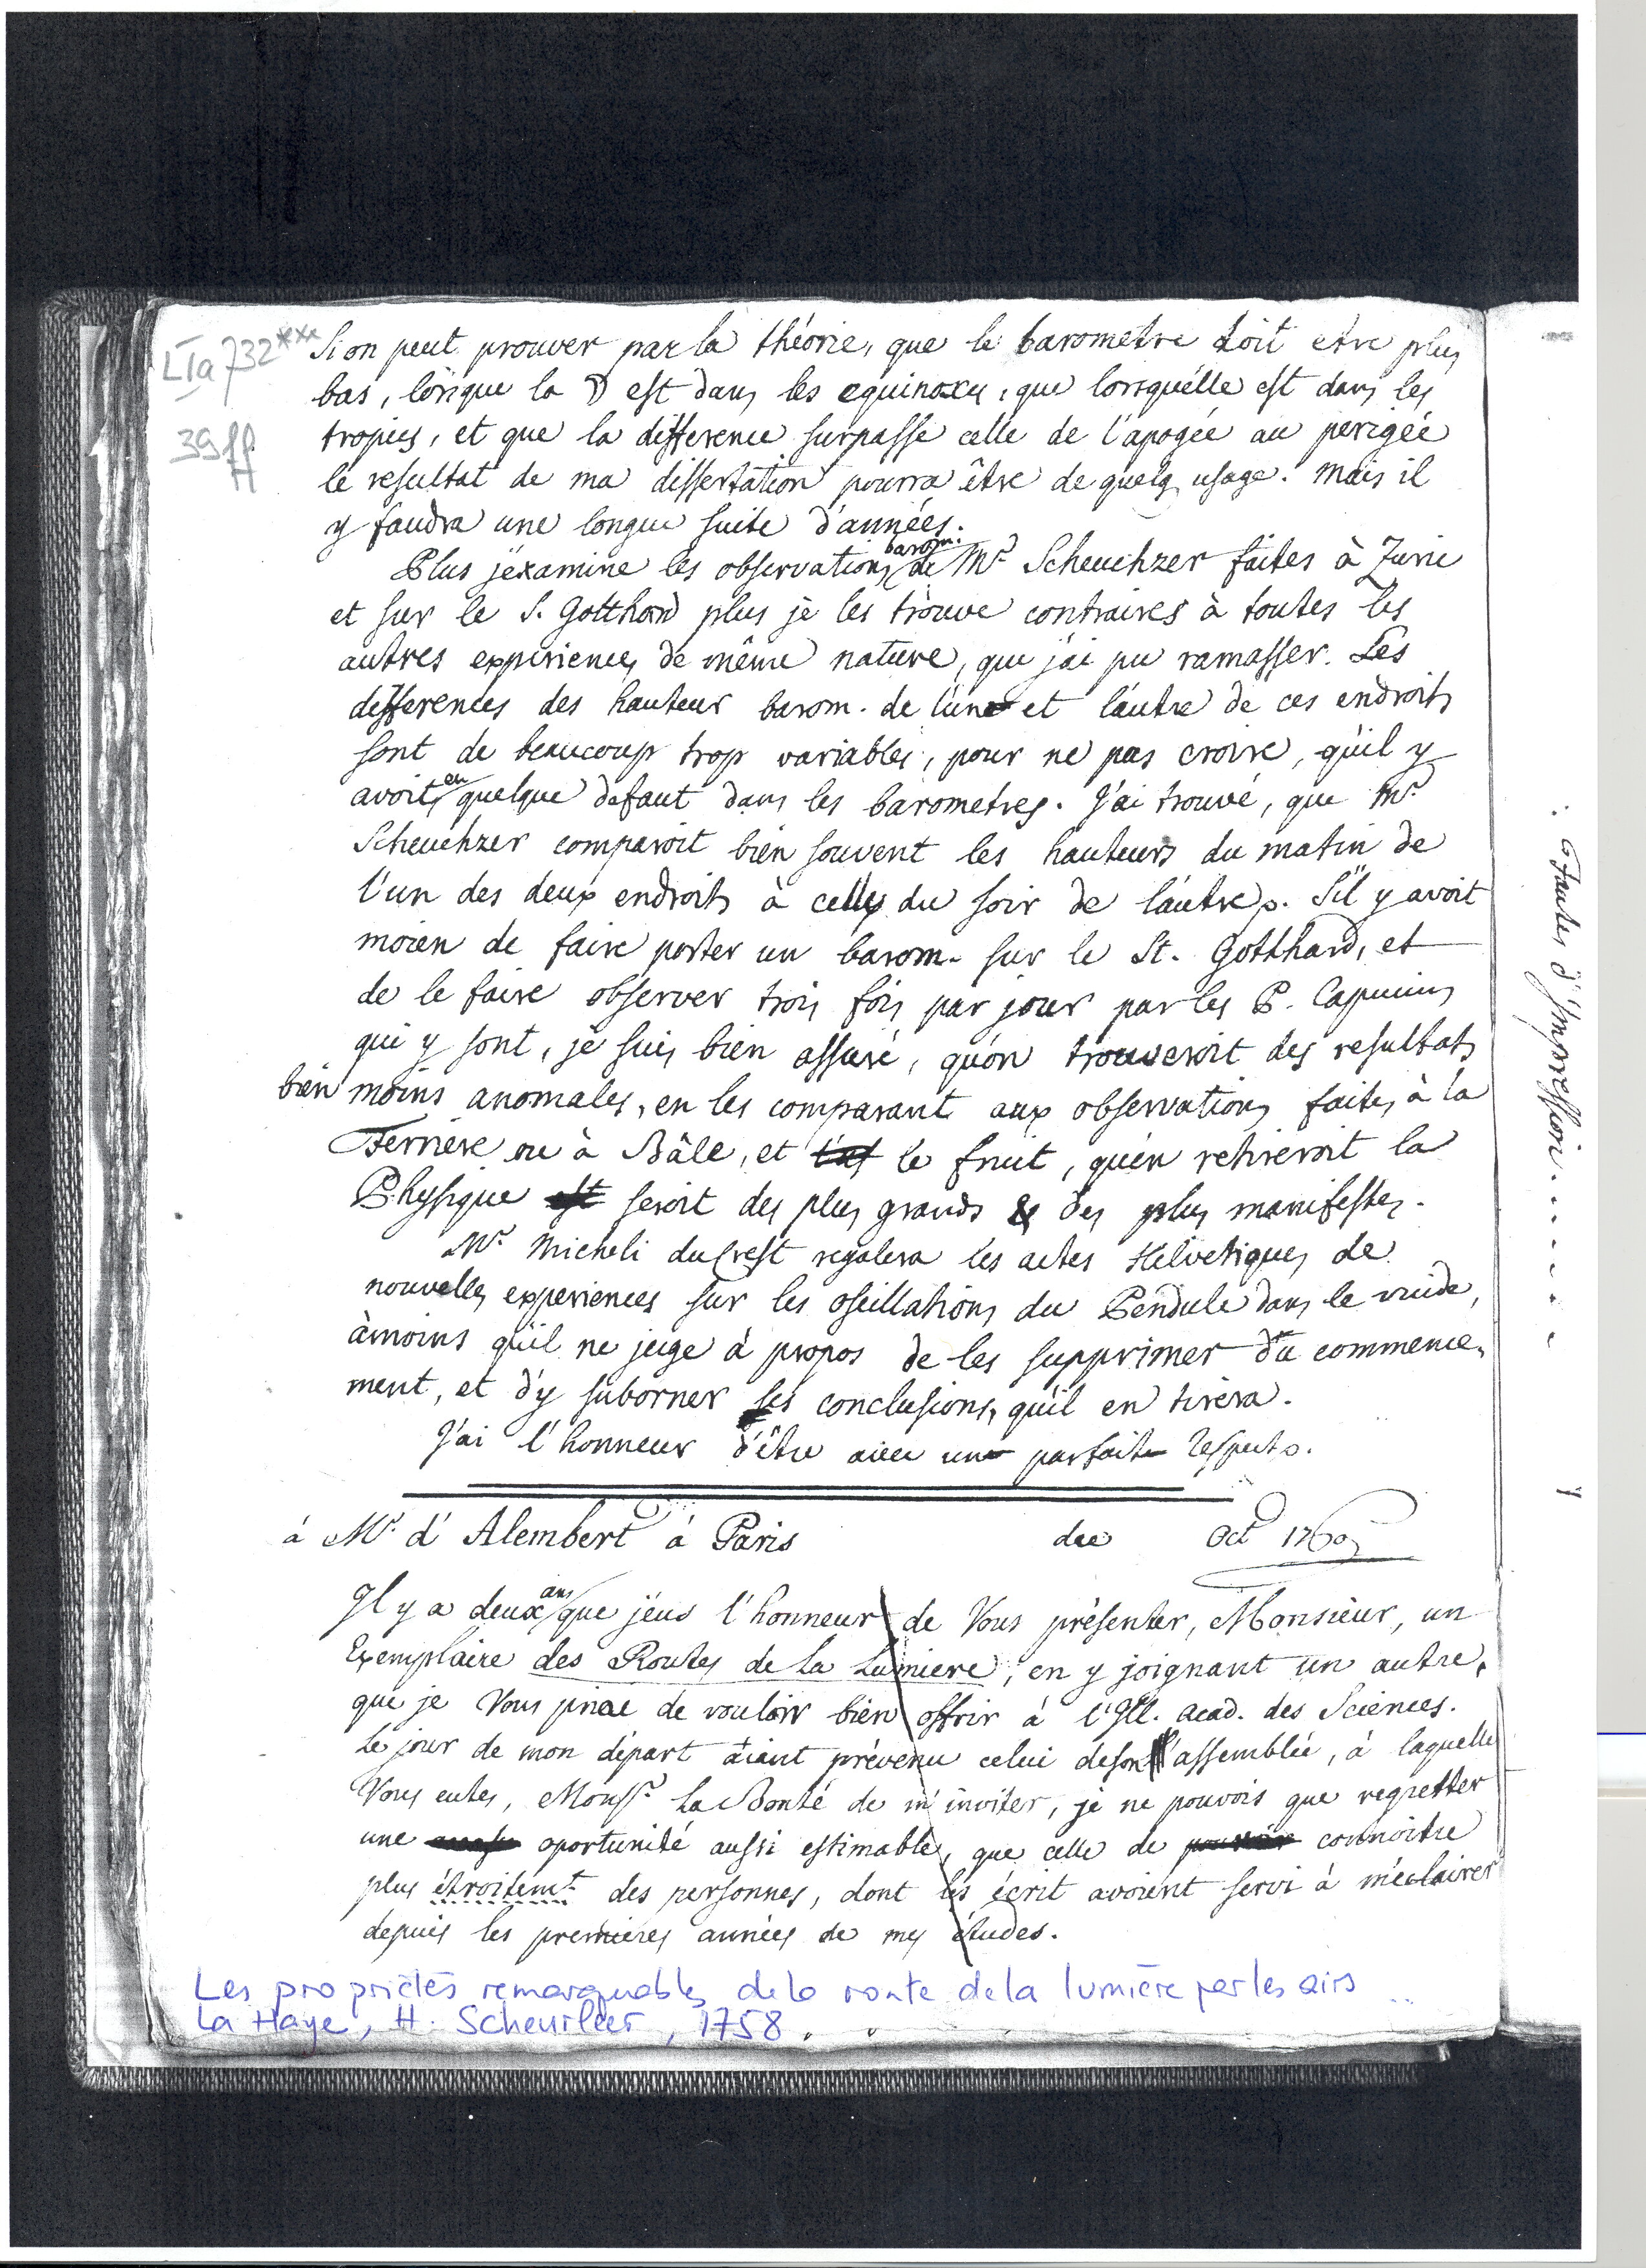 LIa 732***
39 ff
Si on peut prouver par la théorie, que le barometre doit etre plus
bas, lorsque la ☽ est dans les equinoxes, que lorsqu'elle est dans les
tropics, et que la difference surpasse celle de l'apogée au perigée
le resultat de ma dissertation pourra être de quelq. usage. Mais il
y faudra une longue suite d'années.
Plus j'examine les observations barom. de Mr. Scheuchzer faites à Zuric
et sur le S. Gotthard plus je les trouve contraires à toutes les
autres experiences de même nature, que j'ai pu ramasser. Les
differences des hauteur barom. de l'un et l'autre de ces endroits
sont de beaucoup trop variables, pour ne pas croire, qu'il y
avoit eu quelque defaut dans les barometres. J'ai trouvé, que Mr.
Scheuchzer comparoit bien souvent les hauteurs du matin de
l'un des deux endroits à celles du soir de l'autre. S'il y avoit
moien de faire porter un barom. sur le St. Gotthard, et
de le faire observer trois fois par jour par les P. Capucins
qui y sont, je suis bien assuré, qu'on trouveroit des resultats
bien moins anomales, en les comparant aux observations faites à la
Ferriere ou à Bâle, et le fruit, qu'en retireroit la
Physique est seroit des plus grands & des plus manifestes.
Mr. Micheli du Crest regalera les actes Helvetiques de
nouvelles experiences sur les oscillations du Pendule dans le vuide,
à moins qu'il ne juge à propos de les supprimer du commence-
ment, et d'y suborner ses conclusions, qu'il en tirera.
J'ai l'honneur d'être avec un parfait respect.
à Mr. d'Alembert à Paris dee Oct 1760
Il y a deux ans que j'eus l'honneur de Vous présenter, Monsieur, un
Exemplaire des Routes de la Lumiere, en y joignant un autre,
que je Vous priae de vouloir bien offrir à l'Ill. acad. des Sciences.
Le jour de mon départ aiant prévenu celui de son assemblée, à laquelle
Vous eutes, Monsr. la Bonté de m'inviter, je ne pouvois que regretter
une oportunité aussi estimable, que celle de pouvoir connoitre
plus étroitemt. des personnes, dont les écrit avoient servi à m'éclairer
depuis les premieres années de mes études.
Les propriétés remarquables de la route de la lumière par les airs ..
La Haye, H. Scheurleer, 1758.
: Fautes d'Impression . . . . . .